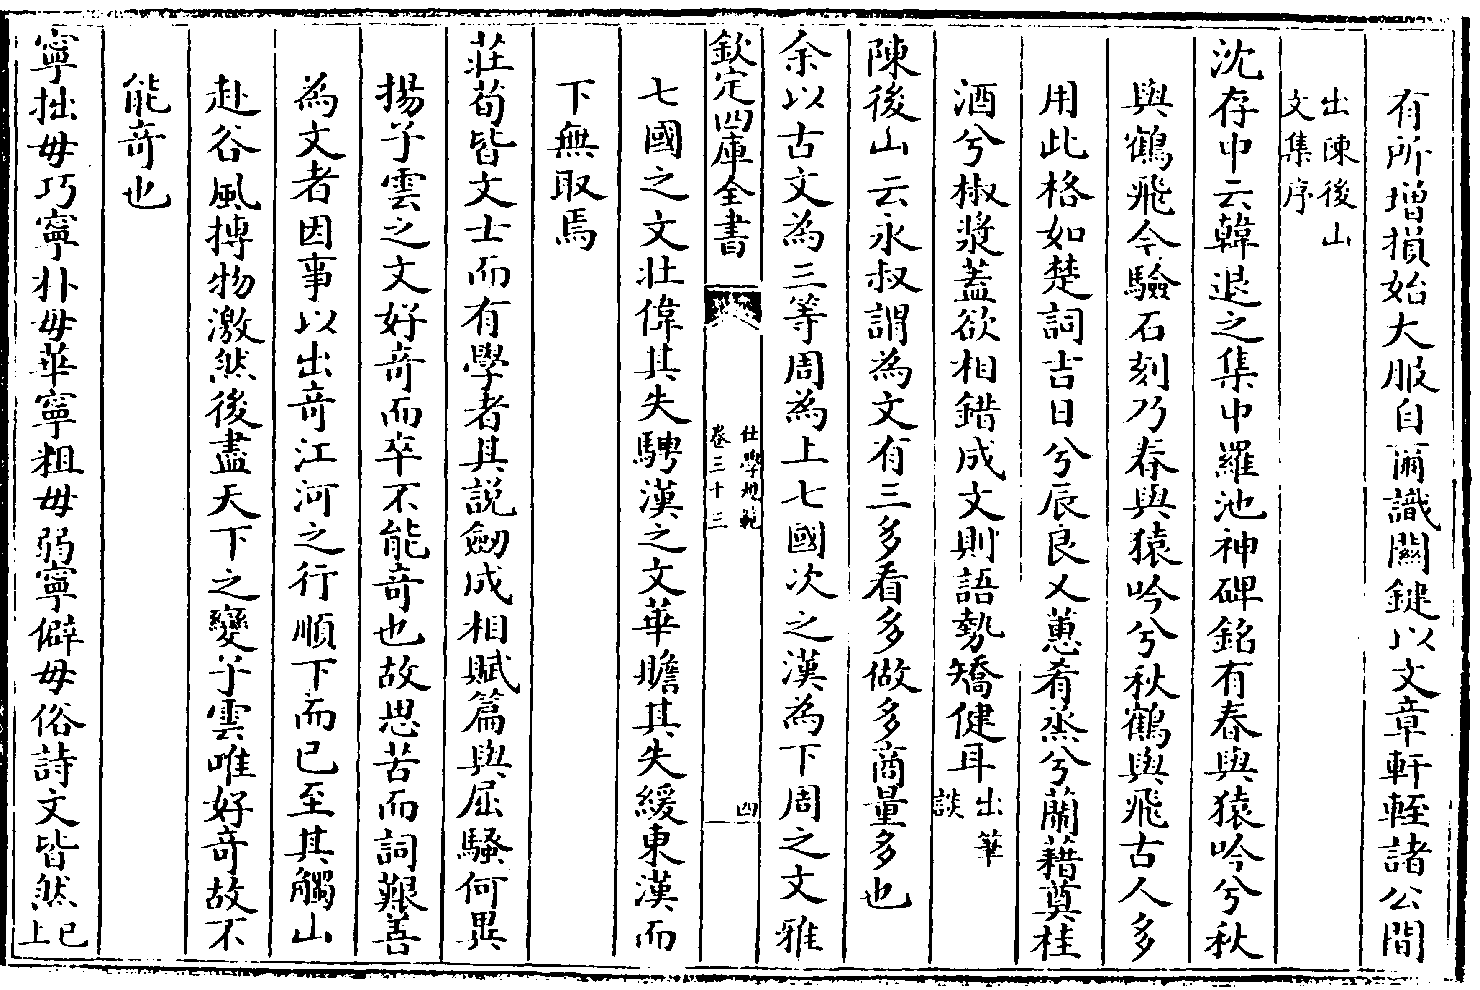 有所增損始大服自爾識關鍵以文章軒輊諸公間
出陳後山
文集序
沈存中云韓退之集中羅池神碑銘有春與猿吟兮秋
與鶴飛今驗石刻乃春與猿吟兮秋鶴與飛古人多
用此格如楚詞吉日兮辰良又蕙肴蒸兮蘭藉奠桂
酒兮椒漿蓋欲相錯成文則語勢矯健耳出筆
談
陳後山云永叔謂為文有三多看多做多商量多也
余以古文為三等周為上七國次之漢為下周之文雅
欽定四庫全書
仕學規範
卷三十三
四
七國之文壯偉其失騁漢之文華贍其失緩東漢而
下無取焉
莊荀皆文士而有學者其說劒成相賦篇與屈騷何異
揚子雲之文好奇而卒不能奇也故思苦而詞艱善
為文者因事以出奇江河之行順下而已至其觸山
赴谷風搏物激然後盡天下之變子雲唯好奇故不
能奇也
寧拙毋巧寧朴毋華寧粗毋弱寧僻毋俗詩文皆然已
上